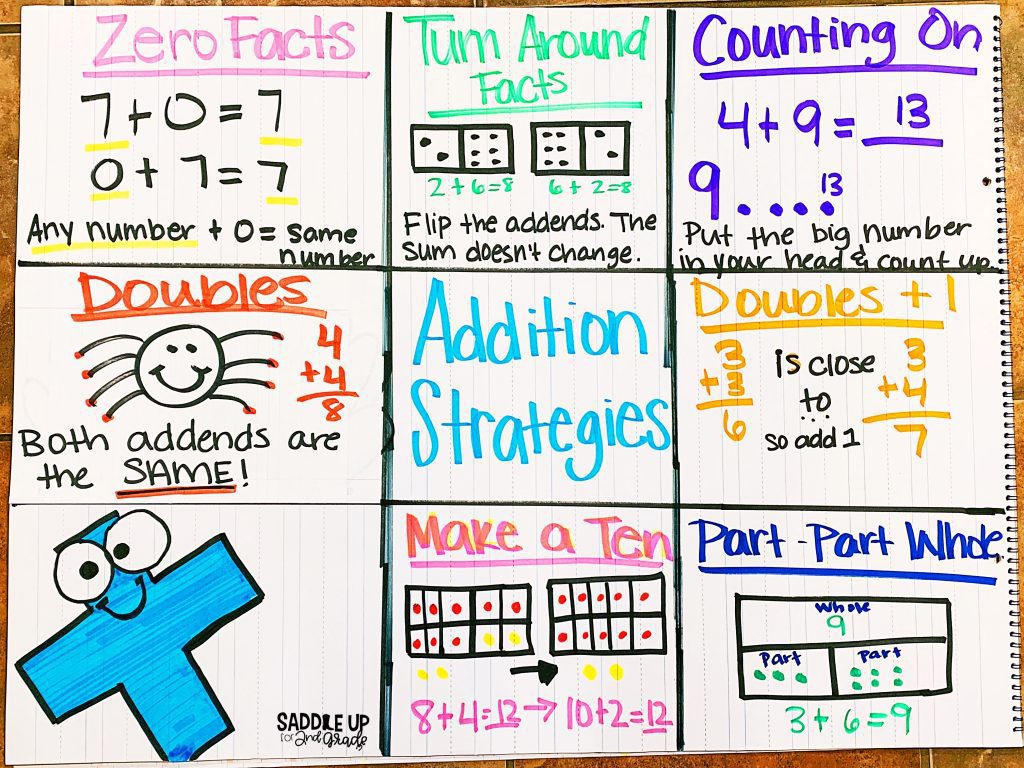 Zero Facts
7+0=7
0+7=7
Any number + 0 = same
number
Turn Around
Facts
2+6=8 6+2=8
Flip the addends. The
sum doesn't change.
Counting On
4+9=13
9 13
Put the big number
in your head & count up.
Doubles
4
+4
8
Both addends are
the SAME!
Addition
Strategies
Doubles +1
3
+3
6
is close
to
so add 1
3
+4
7
SADDLE UP
for 2nd Grade
Make a Ten
8+4=12→10+2=12
Part-Part Whole
Whole
9
Part Part
3+6=9